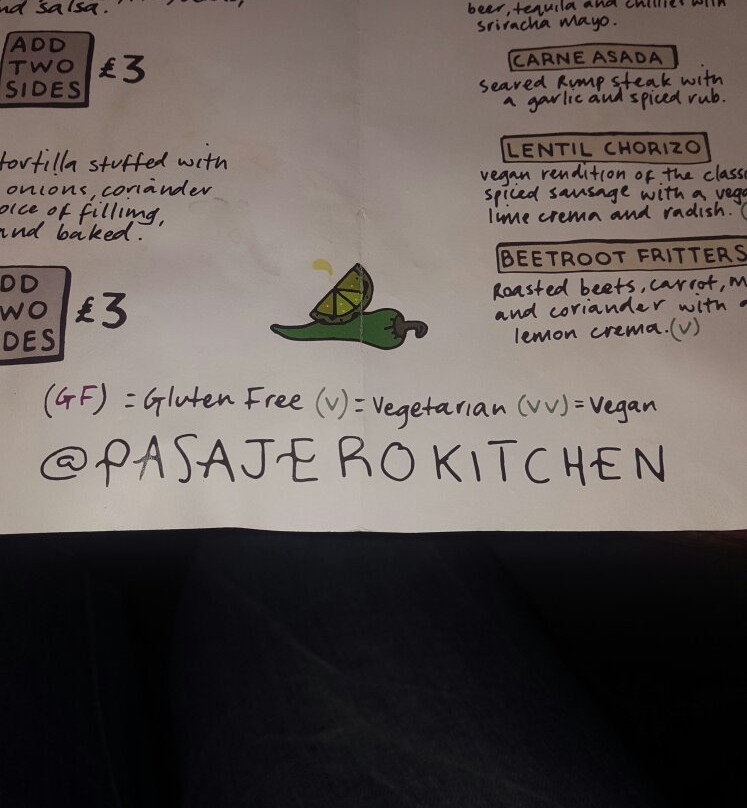 nd salsa.
ADD
TWO
SIDES
£3
tortilla stuffed with
onions, coriander
oice of filling,
and baked.
DD
WO
DES
£3
beer, tequila and chillies with
sriracha mayo.
CARNE ASADA
seared Rump steak with
a garlic and spiced rub.
LENTIL CHORIZO
vegan rendition of the class
spiced sausage with a vega
lime crema and radish. (
BEETROOT FRITTERS
Roasted beets, carrot, m
and coriander with a
lemon crema. (V)
(GF) = Gluten Free (V) = Vegetarian (VV) = Vegan
@PASAJEROKITCHEN